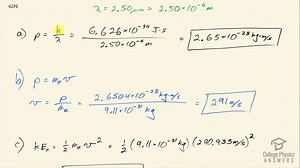 42PE
λ = 2.50 μm = 2.50 × 10⁻⁶ m
a) p = h/λ = 6.626 × 10⁻³⁴ J·s / 2.50 × 10⁻⁶ m = 2.65 × 10⁻²⁸ kg m/s
b) p = mₑ v
v = p/mₑ = 2.6504 × 10⁻²⁸ kg m/s / 9.11 × 10⁻³¹ kg = 291 m/s
c) KEₑ = ½ mₑ v² = ½ (9.11 × 10⁻³¹ kg)(290.933 m/s)²
College Physics
ANSWERS